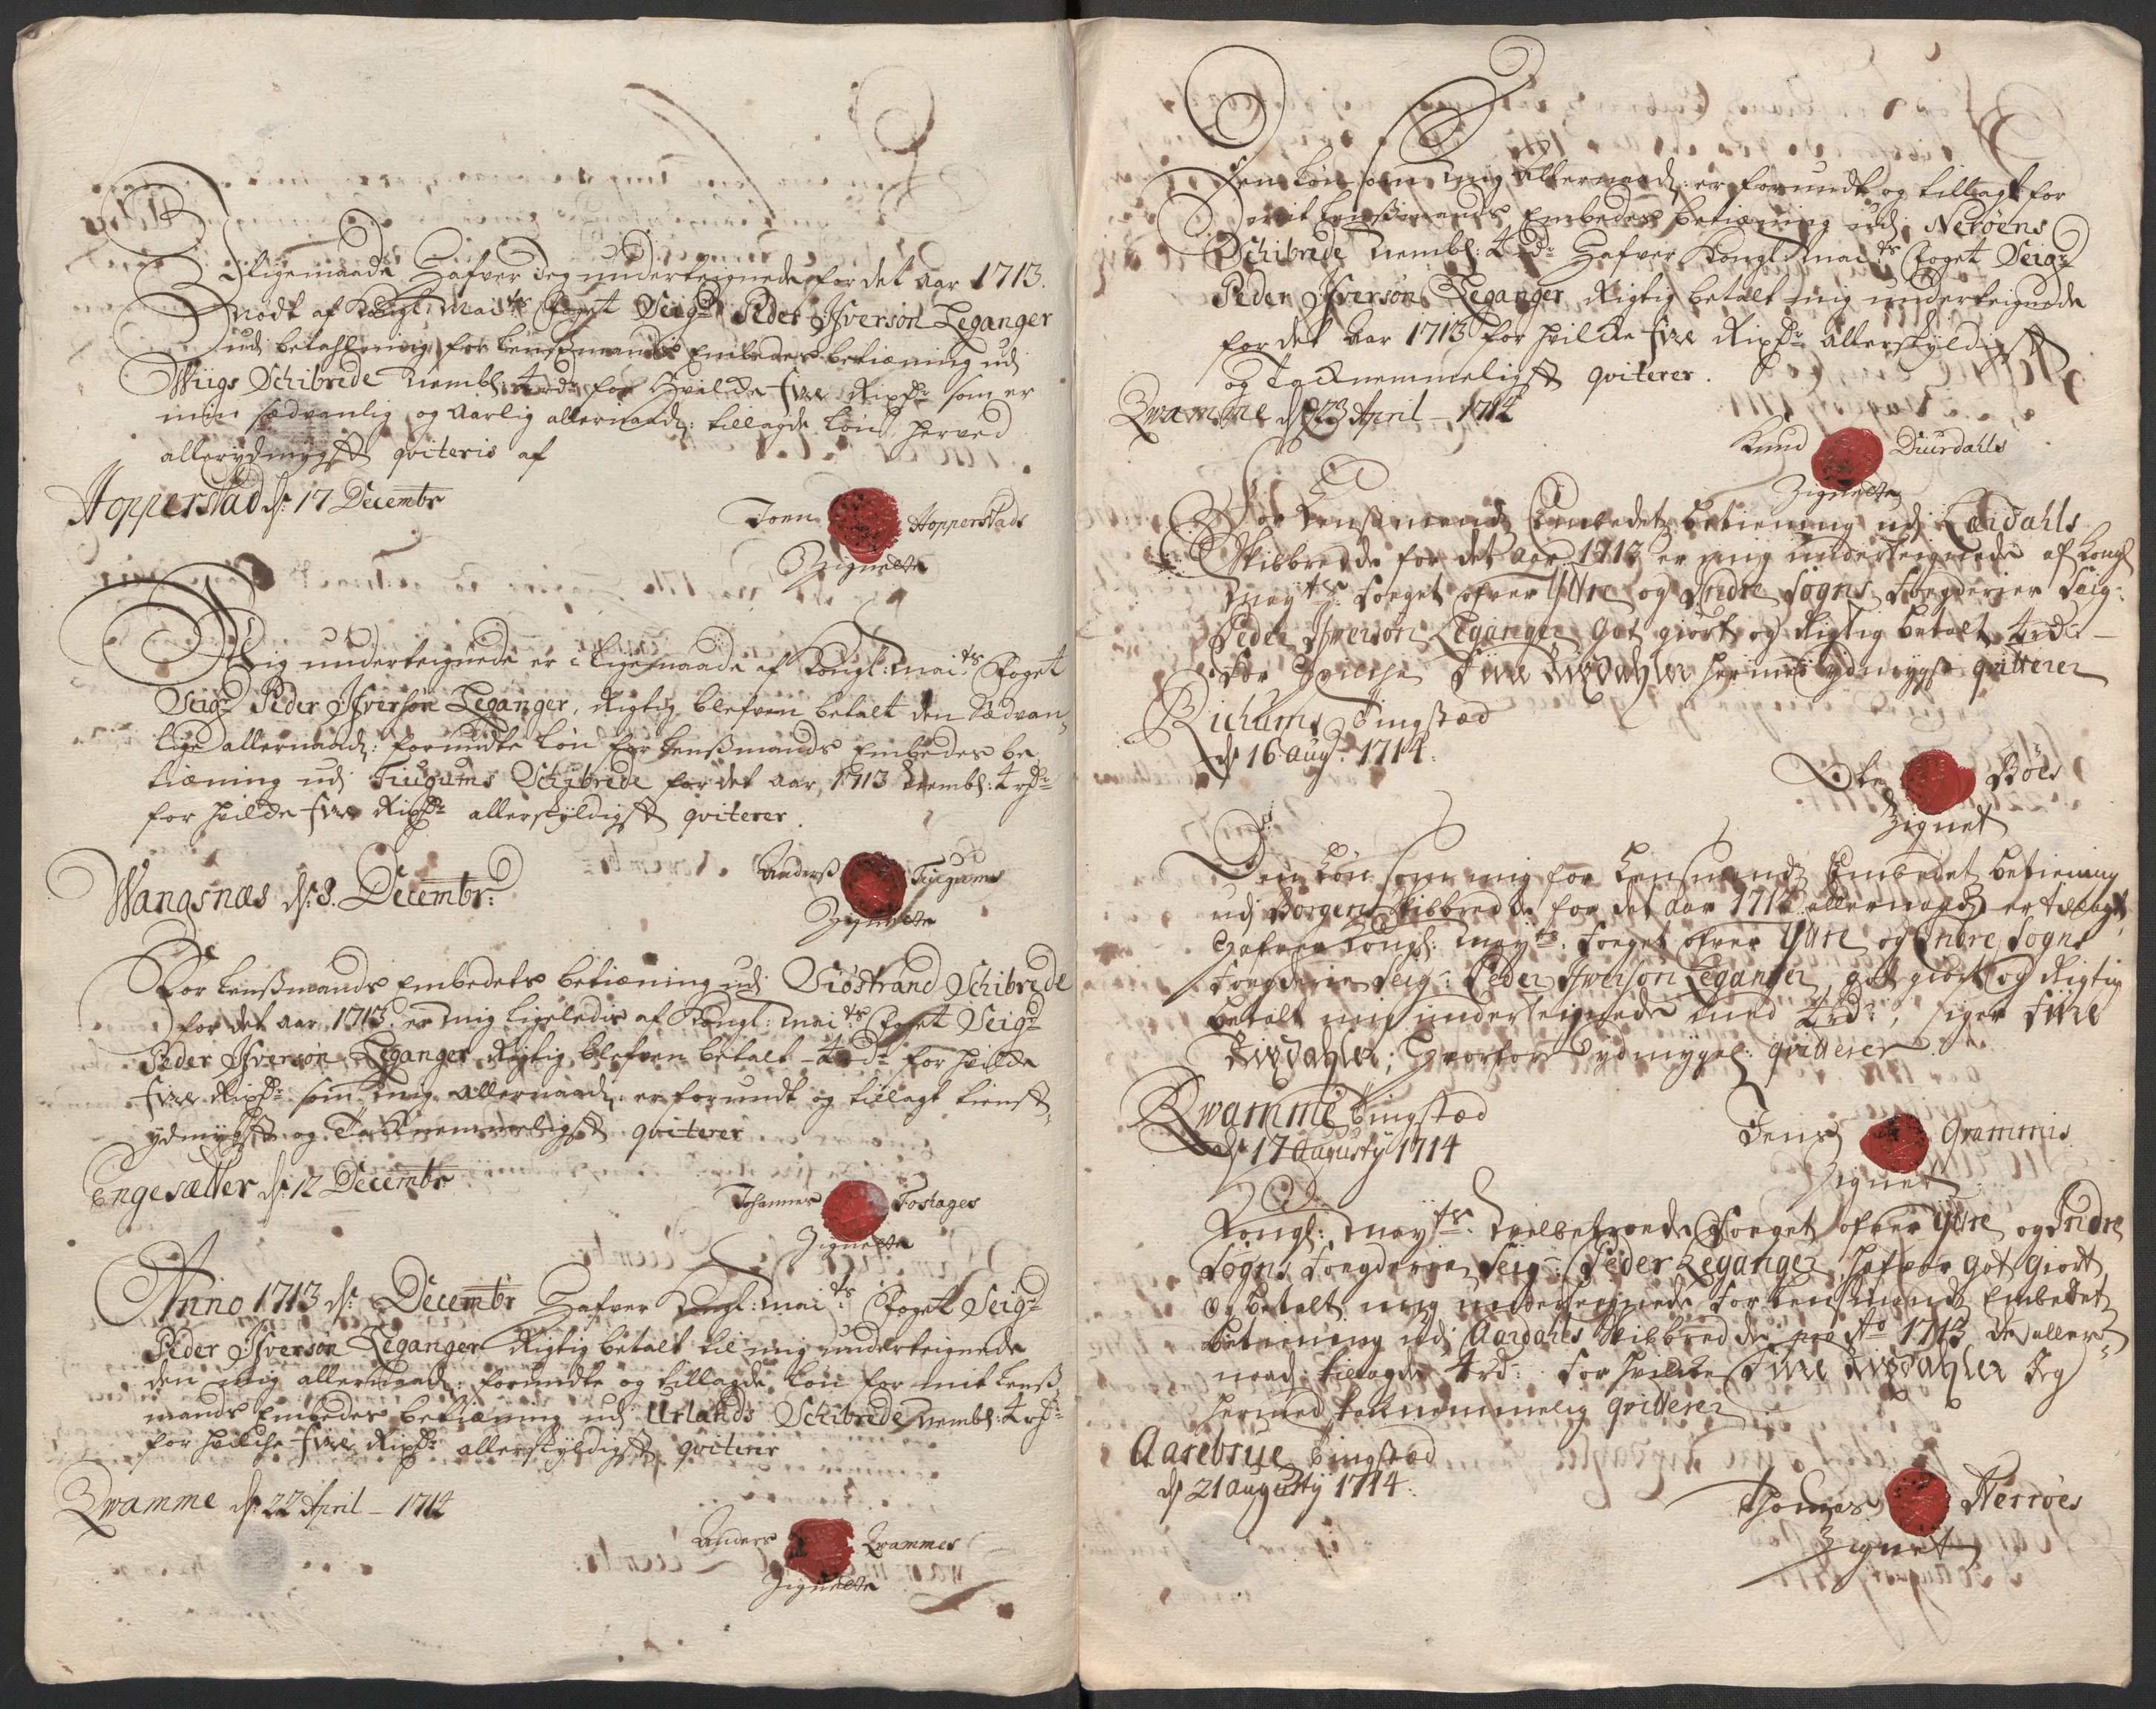 Ligemaade Hafver Jeg underteignede for det aar 1713.
Nødt af Kongl: Mai:ts Foget Seigr Peder Jfverson Leganger
udj betahlning for Lenßmands Embedes betiæning udj
Wiigs Schibrede Nembl: 4 rdr for Hvilcke fire Rixdr som er
min sædvanlig og Aarlig allernaad: tillagde Løn, herved
allerydmygst qviteris af
Hopperstad ds: 17 Decembr
Joen Hopperstads
Zignette
Mig underteignede er i ligemaade af Kongl: Mai:ts Foget
Seigr Peder Jfverson Leganger, Rigtig blefven betalt den Sædvan-
lige allernaad: forundte Løn for Lenßmands Embedes be
tiæning udj Tiugums Schibrede for det aar, 1713 Nembl: 4 rdr
for hvilcke fire Rixdr allerskyldigst qviterer.
Wangsnæs ds: 8. Decembr:
Anderß Tiugums
Zignette
For Lenßmands Embedets betiæning udj Siøstrand Schibrede
for det aar 1713 er mig ligeledis af Kongl: Mai:ts Foget Seigr
Peder Jfverson Leganger Rigtig blefven betalt 4 rdr for hvilcke
fire Rixdr som mig allernaad: er forundt og tillagt tienst-
ydmygst og Tacknemmeligst qviterer
Engesætter ds: 12 Decembr
Johannes Fostages
Zignette
Anno 1713 ds: Decembr Hafver Kongl: Mai:ts Foget Seigr
Peder Jfverson Leganger Rigtig betalt til mig underteignede
den mig allernaad: forundte og tillagde Løn for mit Lenß-
mands Embedes betiæning udj Urlands Schibrede Nembl: 4 rdr
for hvilche fire Rixdr allerskyldigst qviterer
Qvamme ds: 22 April - 1714
Anders Qvammes
Zignette
Den Løn som mig Allernaad: er forundt og tillagt for
mit Lenßmands Embedes betiæning udj Nerøens
Schibrede Nembl: 4 rdr Hafver Kongl: Mai:ts Foget Seigr
Peder Jfverson Leganger Rigtig betalt mig underteignede
for det Aar 1713 for hvilcke fire Rixdr allerskyldigst
og Tacknemmeligst qviterer.
Qvamme ds 23 April - 1714
Knud Diurdahls
Zignette
For Lensmends Embedets betiening udj Lærdahls
Skibbrede for det Aar 1713 er mig underteignede af Kongl
May:ts Foeget ofver Ytre og Indre Sogns Foegderier Seig:
Peder Jverson Leganger Got giort og Rigtig betalt 4 rdr -
For Hvilche Fiire Rixdahler hermed ydmygst qvitterer
Richums Tingstæd
ds 16 Aug: 1714.
Ole Bøes
Zignet
Den Løn som mig for Lensmends Embedet betiening
udj Borgens Skibbrede for det Aar 1713 allernaad: er tillagt
Hafver Kongl: May:ts Foeget ofver Ytre og Indre Sogns
Foegderier Seig: Peder Jverson Leganger got giort og Rigtig
betalt mig underteignede med 4 rdr, siger Fiire
Rixdahler; Hvorfor ydmygel: qvitterer
Qvamme Tingstæd
ds 17 Augusty 1714
Jens Grammis
Zignet
Kongl: May:ts Velbetroede Foeget ofver Ytre og Indre
Sogns Foegderier Seig: Peder Leganger, hafver got giort
og betalt mig underteignede for Lensmends Embedet
betiening udj Aardahls Skibbrede pro Ao 1713 de aller-
naad: tillagde 4 rdr: For hvilke Fiire Rixdahler Jeg
hermed taknemmelig qvitterer
Aarebrue Tingstæd
ds 21 Augusty 1714.
Thomas Nerrøes
Zignet